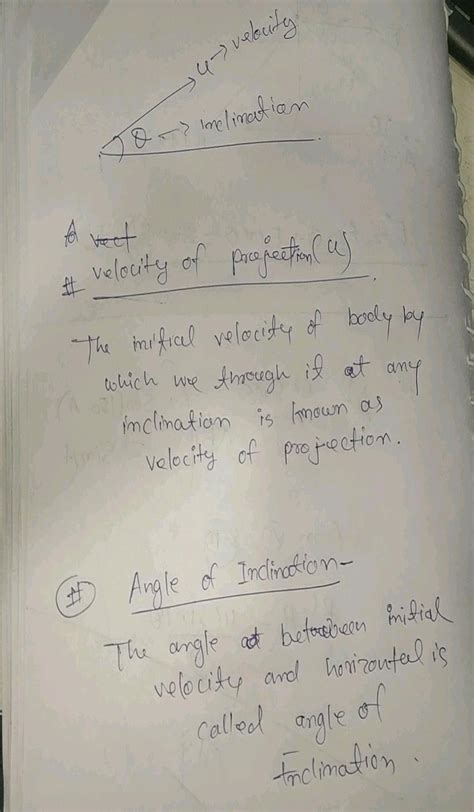 u → velocity
θ → inclination
A vect
# velocity of projection (u)
The initial velocity of body by
which we through it at any
inclination is known as
velocity of projection.
# Angle of Inclination-
The angle at between initial
velocity and horizontal is
called angle of
Inclination.